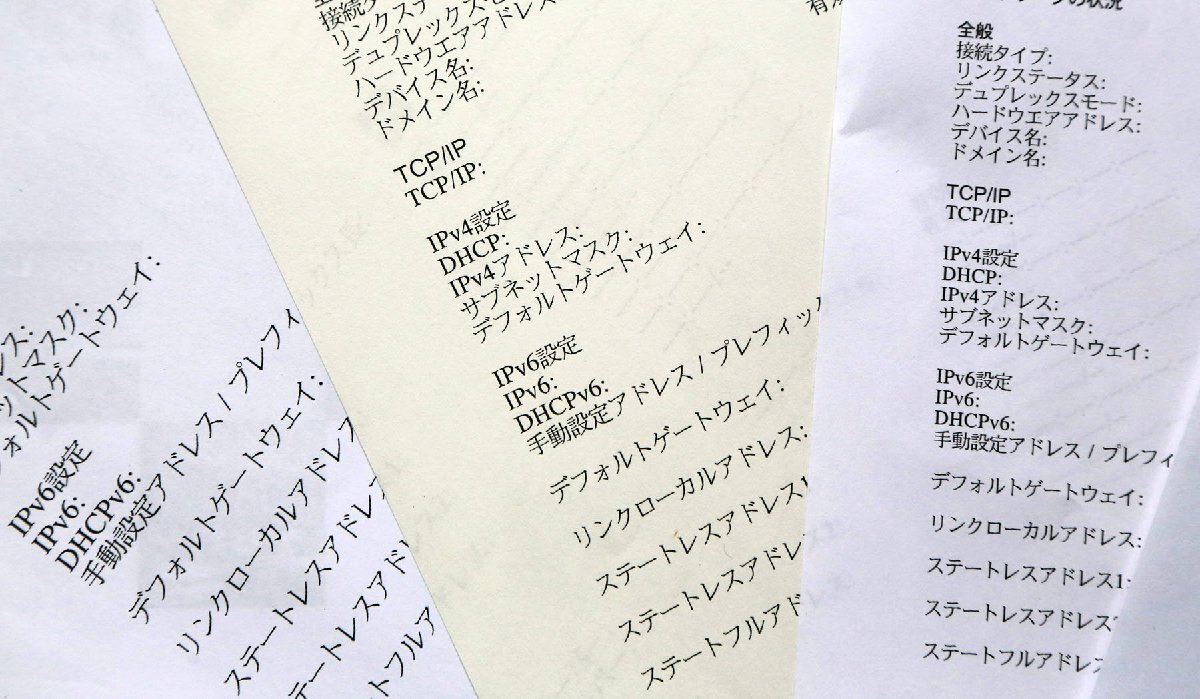 レス:
ットマスク:
フォルトゲートウェイ:
IPv6設定
IPv6:
DHCPv6:
手動設定アドレス / プレフィ
デフォルトゲートウェイ:
リンクローカルアドレス
ステートレスアドレス
テートレスアドレ
トフルア
接続タ
リンクステ
デュプレックスモ
ハードウエアアドレス
デバイス名:
ドメイン名:
TCP/IP
TCP/IP:
IPv4設定
DHCP:
IPv4アドレス:
サブネットマスク:
デフォルトゲートウェイ:
IPv6設定
IPv6:
DHCPv6:
手動設定アドレス / プレフィック
デフォルトゲートウェイ:
リンクローカルアドレス:
ステートレスアドレス1
ステートレスアドレ
ステートフルアド
の状況
全般
接続タイプ:
リンクステータス:
デュプレックスモード:
ハードウエアアドレス:
デバイス名:
ドメイン名:
TCP/IP
TCP/IP:
IPv4設定
DHCP:
IPv4アドレス:
サブネットマスク:
デフォルトゲートウェイ:
IPv6設定
IPv6:
DHCPv6:
手動設定アドレス / プレフィ
デフォルトゲートウェイ:
リンクローカルアドレス:
ステートレスアドレス1:
ステートレスアドレス
ステートフルアドレス